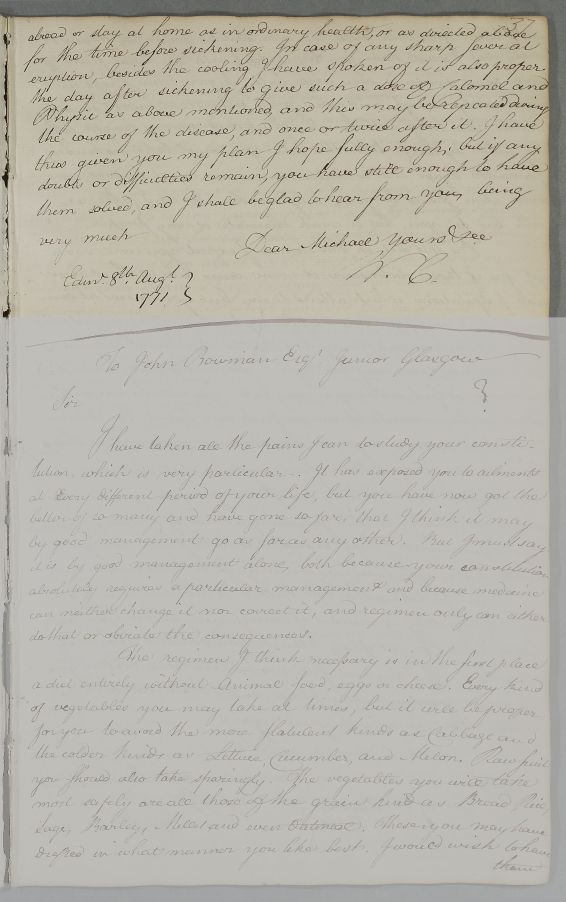 37
abroad or stay at home as in ordinary health, or as directed above
for the time before sickening. In case of any sharp fever at
eruption, besides the cooling I have spoken of it is also proper
the day after sickening to give such a dose of Calomel and
Physic as above mentioned, and this may be repeated during
the course of the disease, and once or twice after it. I have
thus given you my plan I hope fully enough, but if any
doubts or difficulties remain, you have still enough to have
them solved, and I shall be glad to hear from you, being
very much
Dear Michael Yours &ce
W. C.
Edinr. 8th. Augt.
1771.
To John Bowman Esqr. Junior Glasgow
Sir
I have taken all the pains I can to study your consti-
tution, which is very particular. It has exposed you to ailments
at every different period of your life, but you have now got the
better of so many and have gone so far, that I think it may
by good management go as far as any other. But I must say
it is by good management alone, both because your constitution
absolutely requires a particular management and because medicine
can neither change it nor correct it, and regimen only can either
do that or obviate the consequences.
The regimen I think necessary is in the first place
a diet entirely without Animal food, eggs or cheese. Every kind
of vegetables you may take at times, but it will be proper
for you to avoid the more flatulent kinds as Cabbage and
the colder kinds as Lettuce, Cucumber, and Melon. Raw fruit
you should also take sparingly. The vegetables you will take
most safely are all those of the grain kind as Bread, Rice,
Sago, Barley, Millet and even Oatmeal. These you may have
dressed in what manner you like best. I would wish to have
them